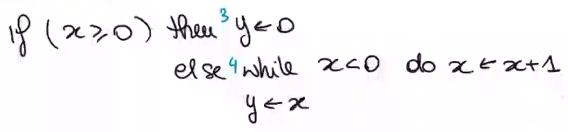 if (x⩾0) then ³ y←0
else ⁴ while x<0 do x←x+1
y←x